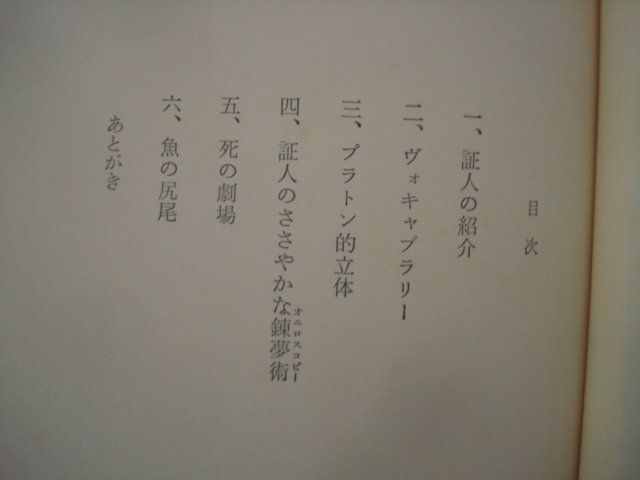 目次
一、証人の紹介
二、ヴォキャブラリー
三、プラトン的立体
四、証人のささやかな錬夢術
オニロスコピー
五、死の劇場
六、魚の尻尾
あとがき